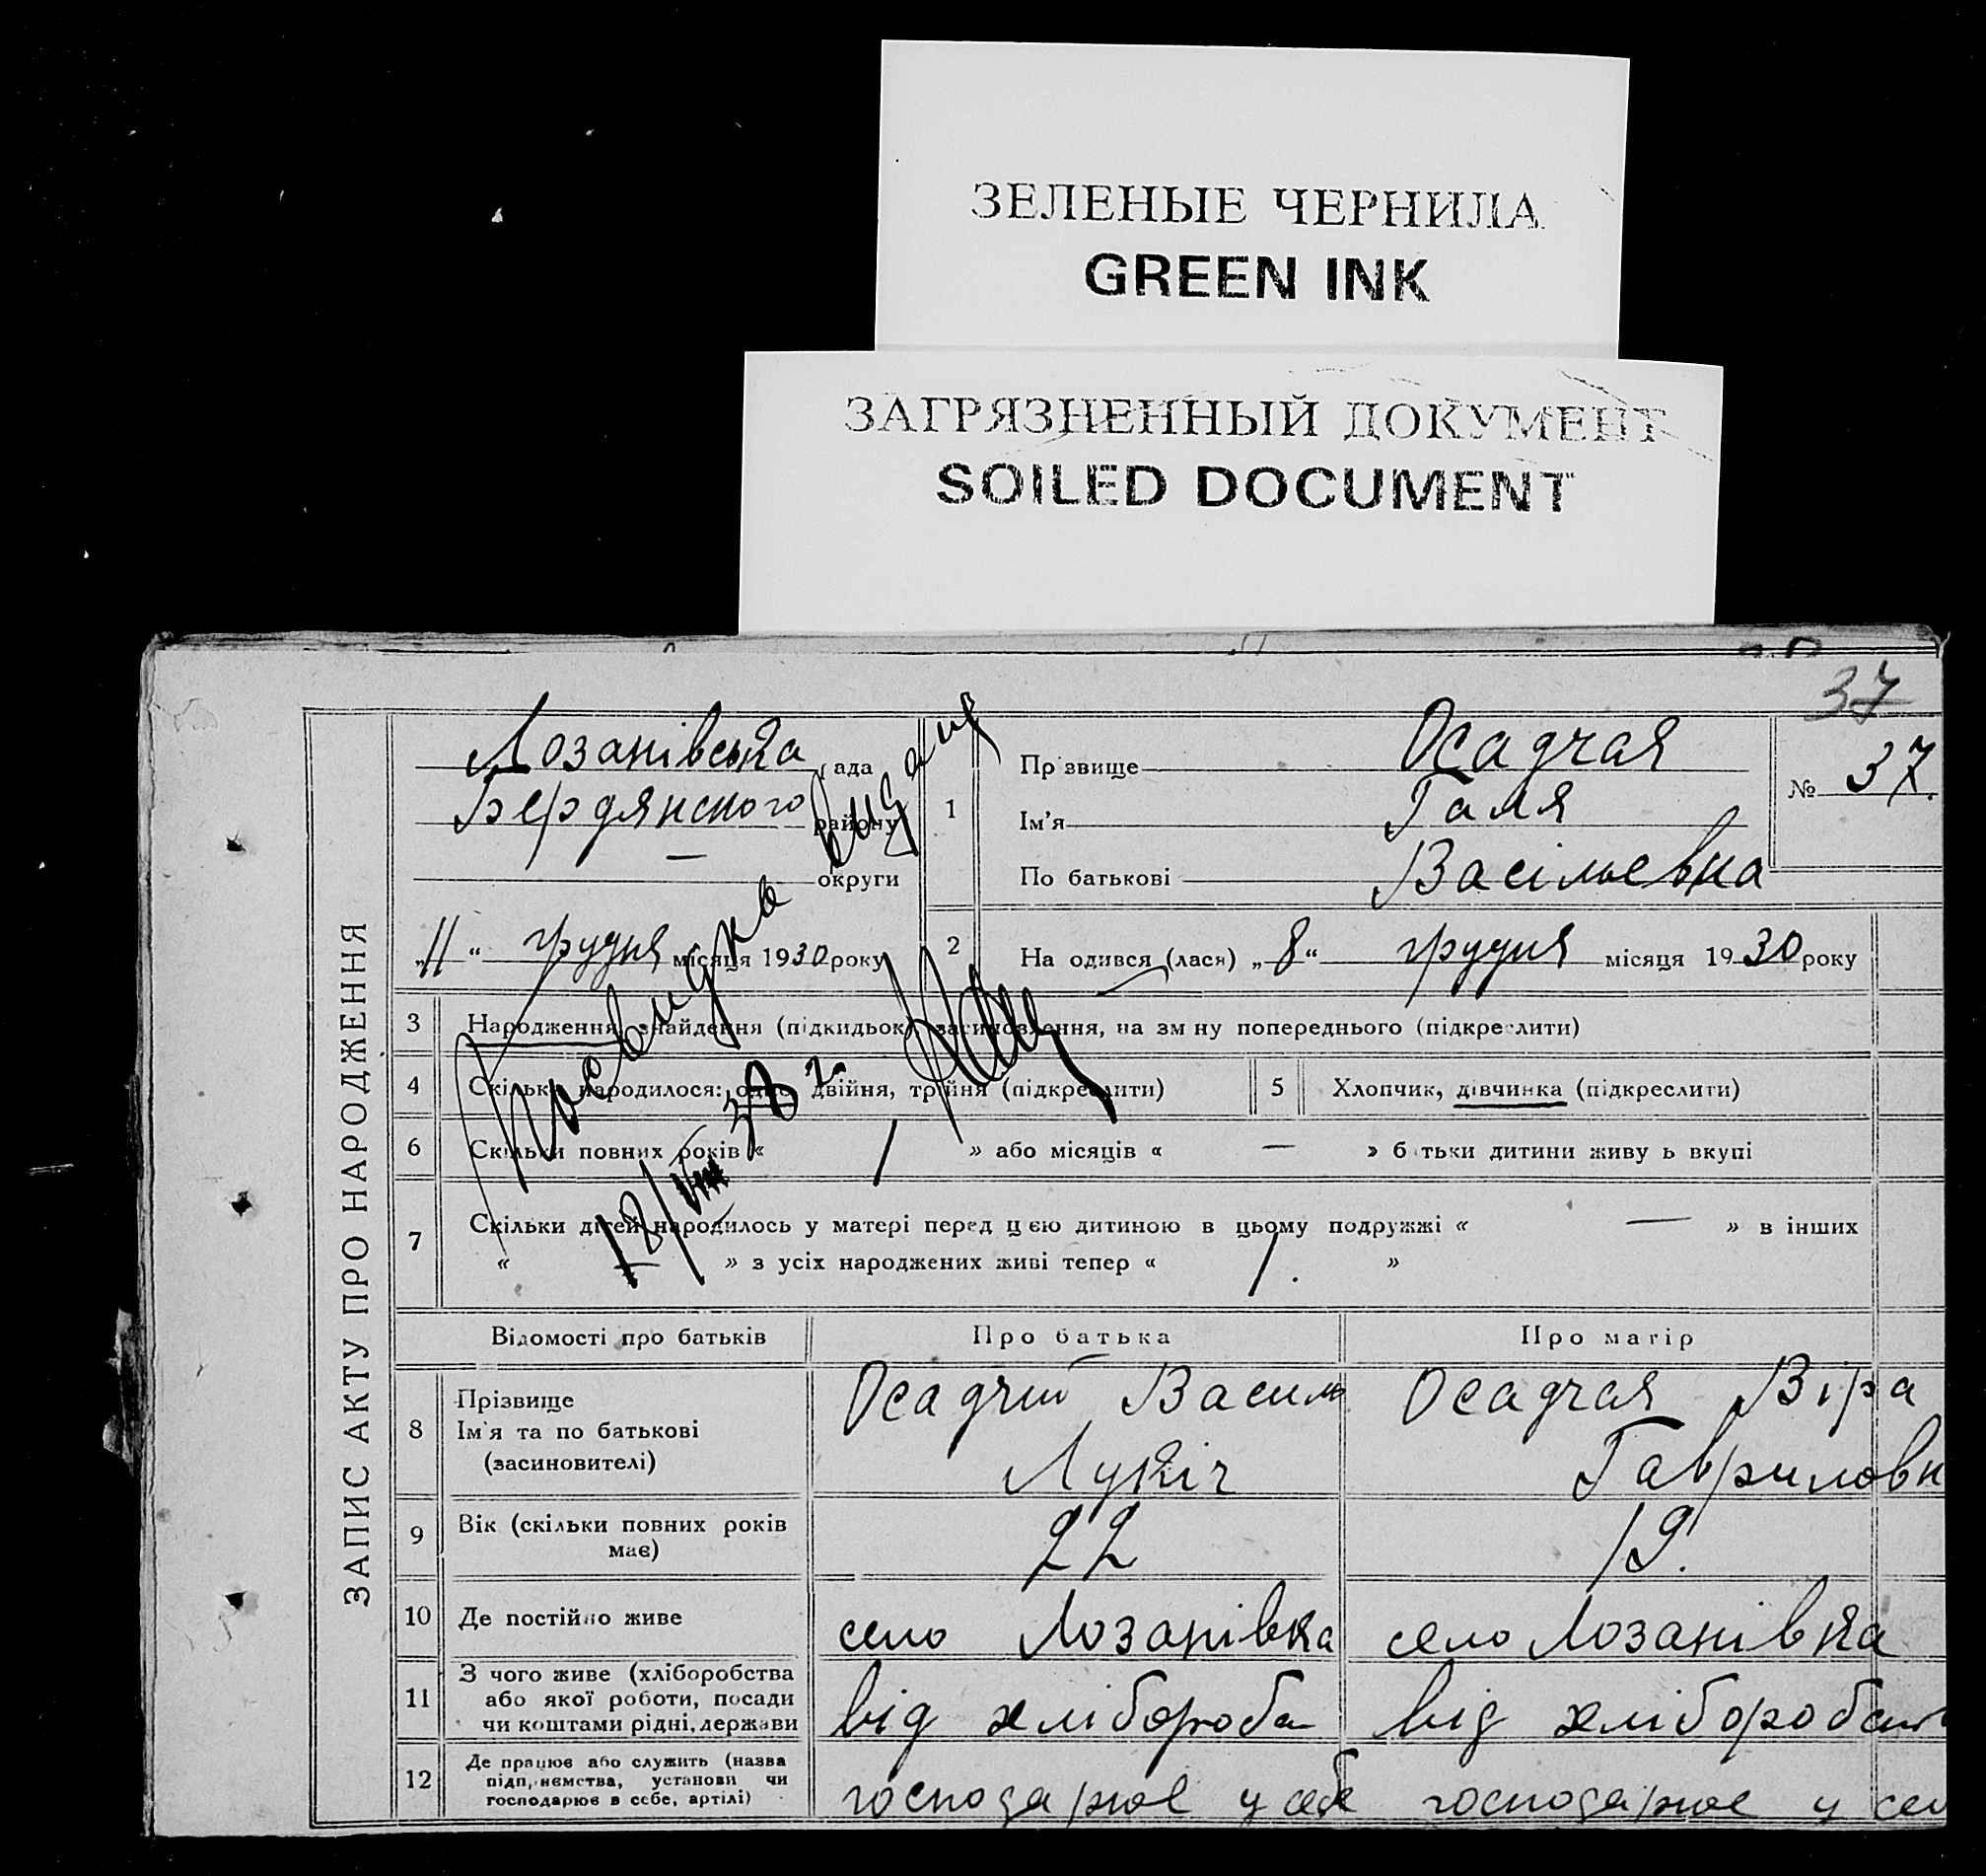 ЗЕЛЕНЫЕ ЧЕРНИЛА
GREEN INK
ЗАГРЯЗНЕННЫЙ ДОКУМЕНТ
SOILED DOCUMENT
37
ЗАПИС АКТУ ПРО НАРОДЖЕННЯ
Лозанівська рада
Бердянского району
— округи
„11“ грудня місяця 1930 року
1
Прізвище Осадчая
Ім'я Галя
По батькові Васільевна
№ 37.
2 На одився (лася) „8“ грудня місяця 1930 року
3 Народження, знайдення (підкидьок), засиновлення, на зміну попереднього (підкреслити)
4 Скільки народилося: одне, двійня, трійня (підкреслити)
5 Хлопчик, дівчинка (підкреслити)
6 Скільки повних років « 1 » або місяців « — » батьки дитини живуть вкупі
7 Скільки дітей народилось у матері перед цією дитиною в цьому подружжі « — » в інших
« » з усіх народжених живі тепер « 1. »
Посвидка видана
18/VIII 38 г.
Відомості про батьків Про батька Про матір
8 Прізвище
Ім'я та по батькові
(засиновителі)
Осадчий Василь
Лукіч
Осадчая Віра
Гавриловн
9 Вік (скільки повних років
має)
22 19.
10 Де постійно живе село Лозанівка село Лозанівка
11 З чого живе (хліборобства
або якої роботи, посади
чи коштами рідні, держави
від хлібороба від хліборобст
12 Де працює або служить (назва
підприємства, установи чи
господарює в себе, артілі)
господарює у себе господарює у се